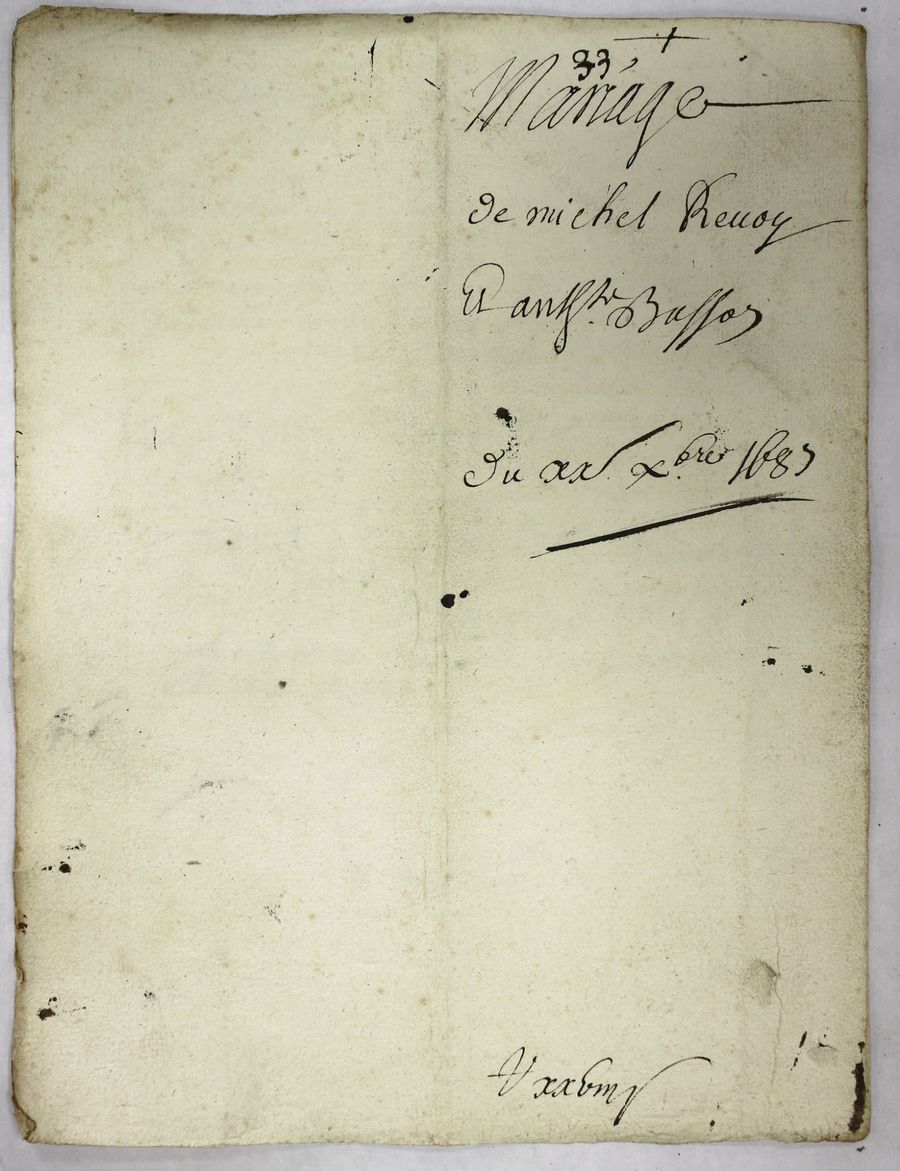 33
Mariage
de michel Reuoy
Et anth.te Basson
Du xx. xbre 1687
xxbiij